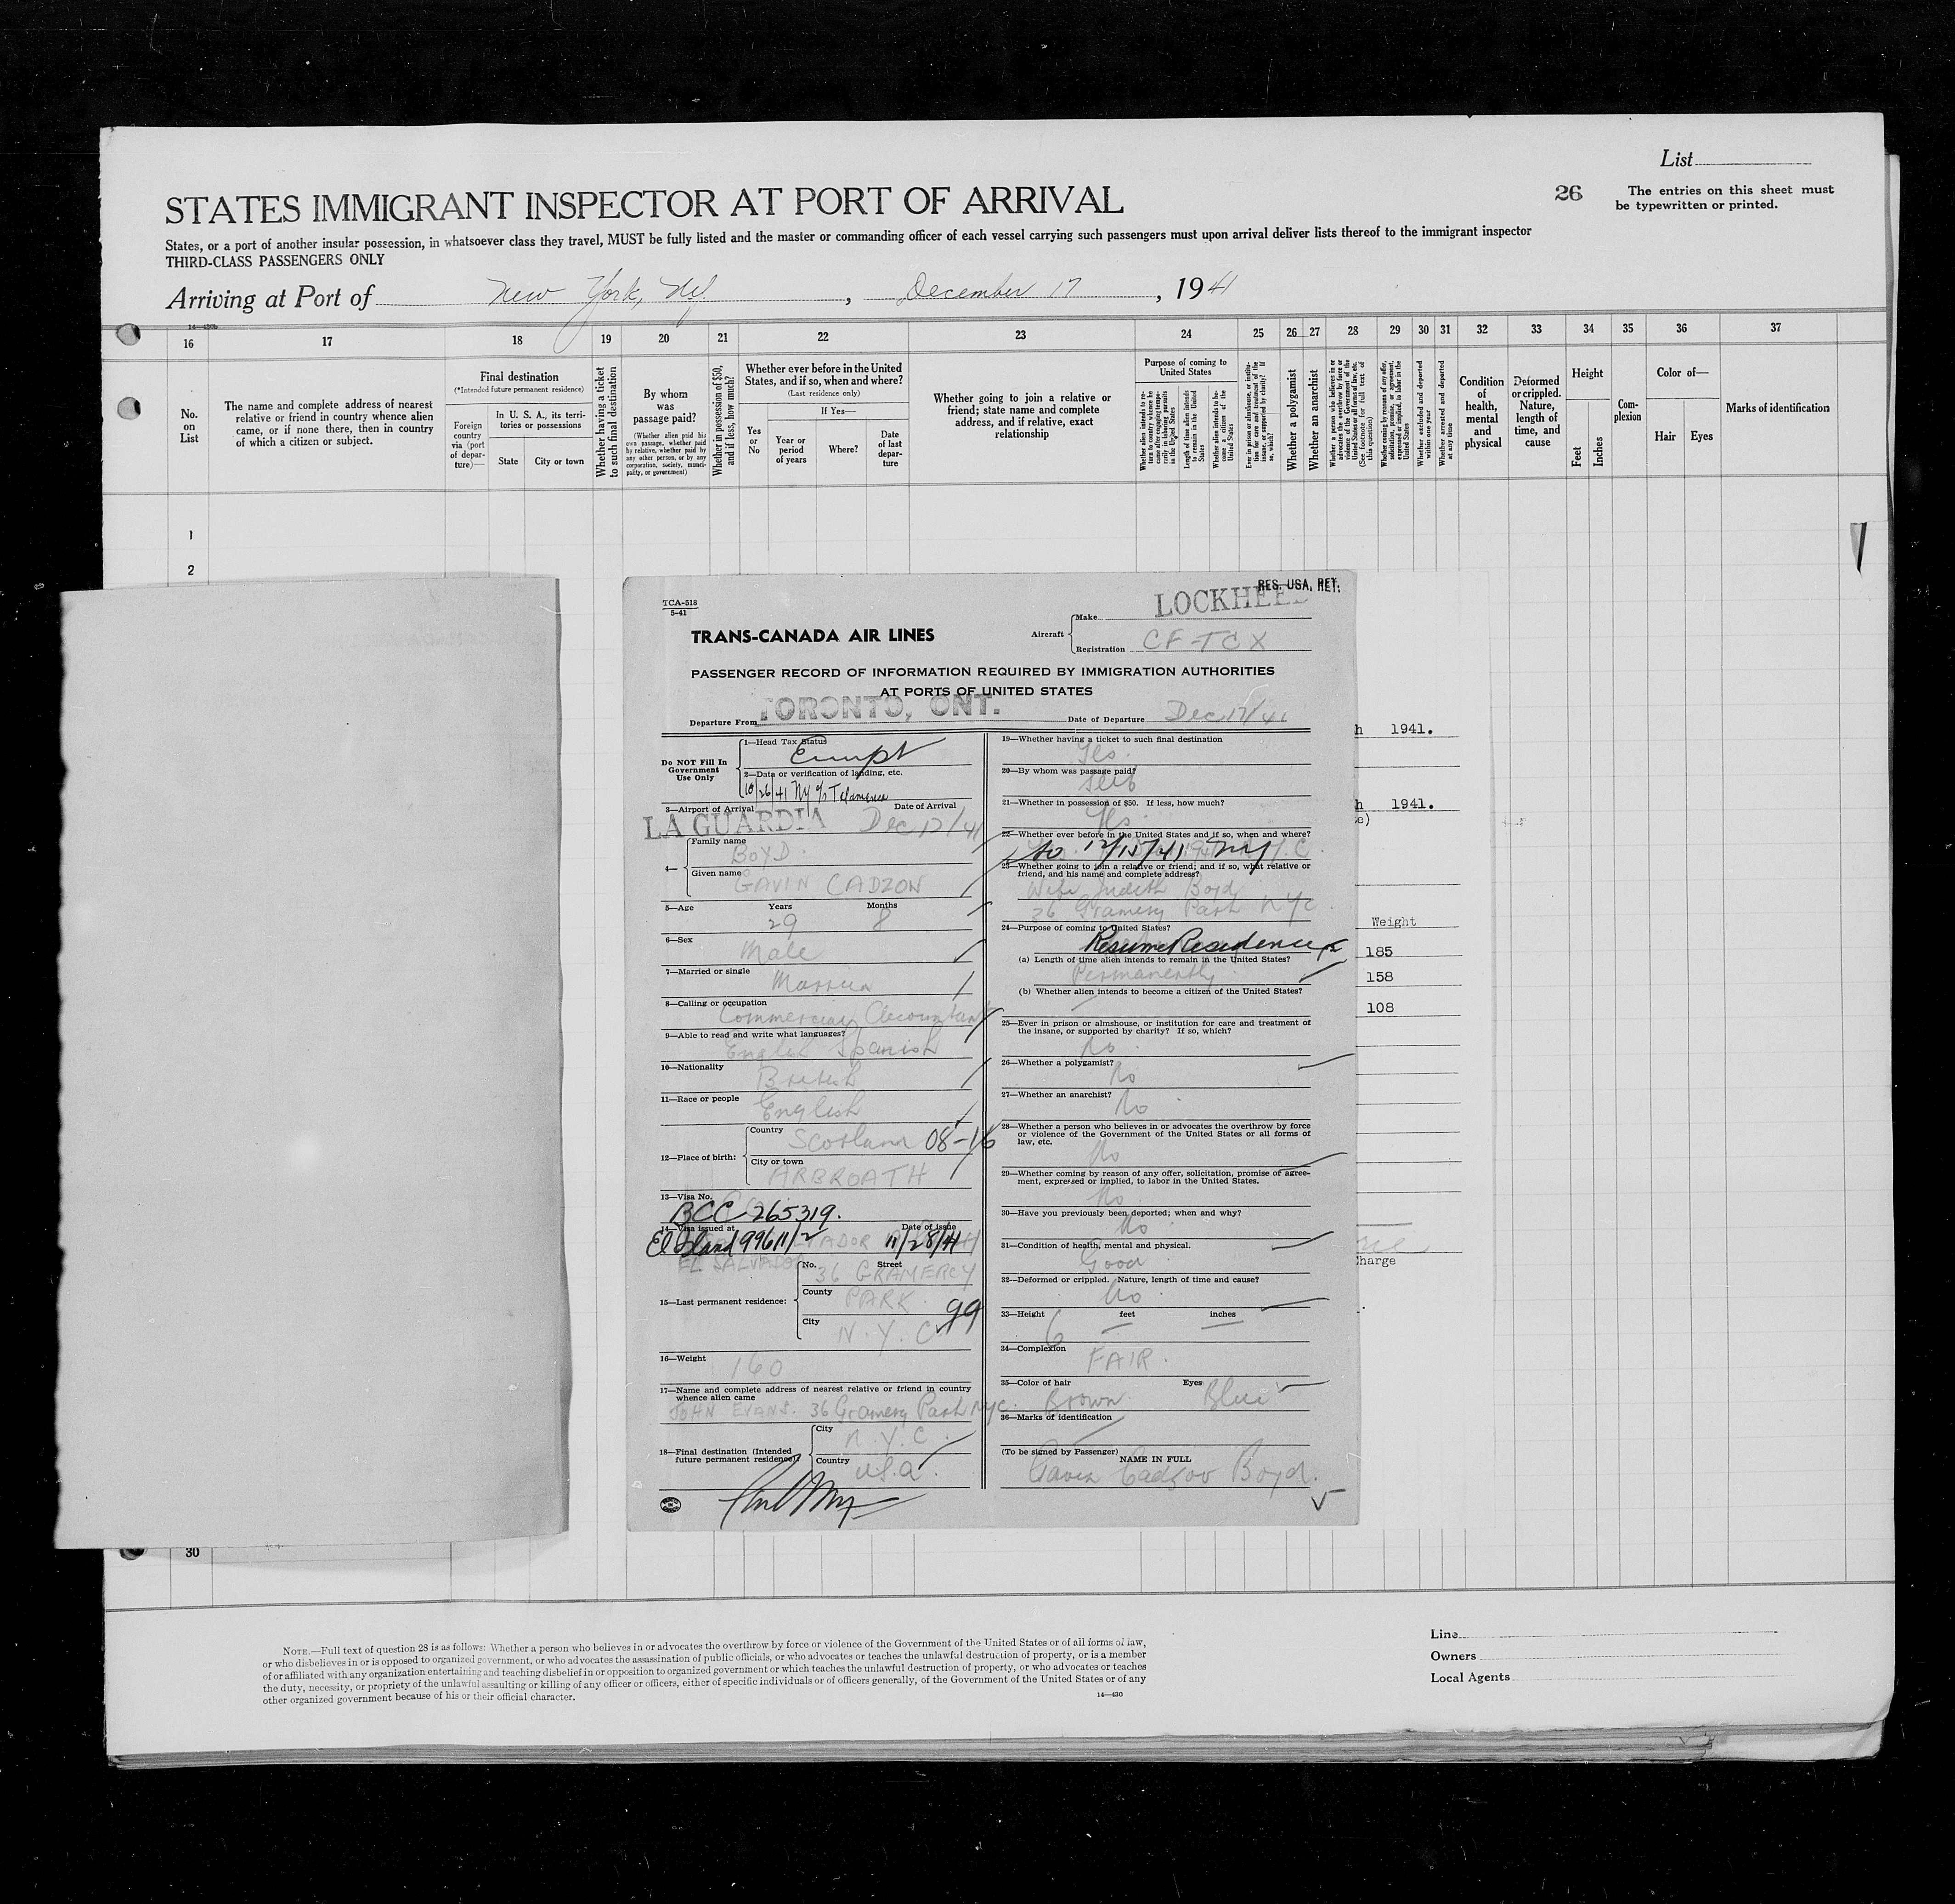 List
STATES IMMIGRANT INSPECTOR AT PORT OF ARRIVAL
26
The entries on this sheet must
be typewritten or printed.
States, or a port of another insular possession, in whatsoever class they travel, MUST be fully listed and the master or commanding officer of each vessel carrying such passengers must upon arrival deliver lists thereof to the immigrant inspector
THIRD-CLASS PASSENGERS ONLY
Arriving at Port of New York, NY, December 17, 1941
16 17 18 19 20 21 22 23 24 25 26 27 28 29 30 31 32 33 34 35 36 37
No. on List
The name and complete address of nearest
relative or friend in country whence alien
came, or if none there, then in country
of which a citizen or subject.
Final destination
(*Intended future permanent residence)
Foreign country via (port of departure)—
In U. S. A., its territories or possessions
State
City or town
Whether having a ticket to such final destination
By whom was passage paid?
(Whether alien paid his own passage, whether paid by relative, whether paid by any other person, or by any corporation, society, municipality, or government)
Whether in possession of $50, and if less, how much?
Whether ever before in the United
States, and if so, when and where?
(Last residence only)
Yes or No
If Yes—
Year or period of years
Where?
Date of last departure
Whether going to join a relative or
friend; state name and complete
address, and if relative, exact
relationship
Purpose of coming to
United States
Whether a polygamist
Whether an anarchist
Condition of health, mental and physical
Deformed or crippled. Nature, length of time, and cause
Height
Feet
Inches
Complexion
Color of—
Hair
Eyes
Marks of identification
1
2
TCA-518
5-41
RES. USA, RET.
TRANS-CANADA AIR LINES
Aircraft
Make LOCKHEED
Registration CF-TCX
PASSENGER RECORD OF INFORMATION REQUIRED BY IMMIGRATION AUTHORITIES
AT PORTS OF UNITED STATES
Departure From TORONTO, ONT.
Date of Departure Dec 17/41
Do NOT Fill In
Government
Use Only
1—Head Tax Status
2—Data or verification of landing, etc.
10/26/41 NY
3—Airport of Arrival
Date of Arrival
LA GUARDIA Dec 17/41
4—
Family name
BOYD
Given name
GAVIN CADZOW
5—Age
Years
29
Months
8
6—Sex
Male
7—Married or single
Married
8—Calling or occupation
Commercial Accountant
9—Able to read and write what languages?
English Spanish
10—Nationality
British
11—Race or people
English
12—Place of birth:
Country
Scotland 08-16
City or town
ARBROATH
13—Visa No.
BCC 265319.
14—Visa issued at
Date of issue
99611/2
11/28/41
EL SALVADOR
15—Last permanent residence:
No.
Street
36 GRAMERCY
County
PARK
99
City
N.Y.C
16—Weight
160
17—Name and complete address of nearest relative or friend in country
whence alien came
JOHN EVANS. 36 Gramercy Park NYC.
18—Final destination (Intended
future permanent residence)?
City
N.Y.C.
Country
U.S.A.
19—Whether having a ticket to such final destination
Yes.
20—By whom was passage paid?
Self
21—Whether in possession of $50. If less, how much?
Yes
22—Whether ever before in the United States and if so, when and where?
to 12/15/41 NY
23—Whether going to join a relative or friend; and if so, what relative or
friend, and his name and complete address?
Wife Judith Boyd
36 Gramercy Park NYC
24—Purpose of coming to United States?
Resume Residence
(a) Length of time alien intends to remain in the United States?
Permanently
(b) Whether alien intends to become a citizen of the United States?
25—Ever in prison or almshouse, or institution for care and treatment of
the insane, or supported by charity? If so, which?
No
26—Whether a polygamist?
No
27—Whether an anarchist?
No
28—Whether a person who believes in or advocates the overthrow by force
or violence of the Government of the United States or all forms of
law, etc.
No
29—Whether coming by reason of any offer, solicitation, promise or agree-
ment, expressed or implied, to labor in the United States.
No
30—Have you previously been deported; when and why?
No
31—Condition of health, mental and physical.
Good
32—Deformed or crippled. Nature, length of time and cause?
No
33—Height
feet
inches
6
34—Complexion
FAIR.
35—Color of hair
Eyes
Brown
Blue
36—Marks of identification
(To be signed by Passenger)
NAME IN FULL
Gavin Cadzow Boyd.
1941.
1941.
Weight
185
158
108
Charge
30
NOTE.—Full text of question 28 is as follows: Whether a person who believes in or advocates the overthrow by force or violence of the Government of the United States or of all forms of law,
or who disbelieves in or is opposed to organized government, or who advocates the assassination of public officials, or who advocates or teaches the unlawful destruction of property, or is a member
of or affiliated with any organization entertaining and teaching disbelief in or opposition to organized government or which teaches the unlawful destruction of property, or who advocates or teaches
the duty, necessity, or propriety of the unlawful assaulting or killing of any officer or officers, either of specific individuals or of officers generally, of the Government of the United States or of any
other organized government because of his or their official character.
14—430
Line
Owners
Local Agents